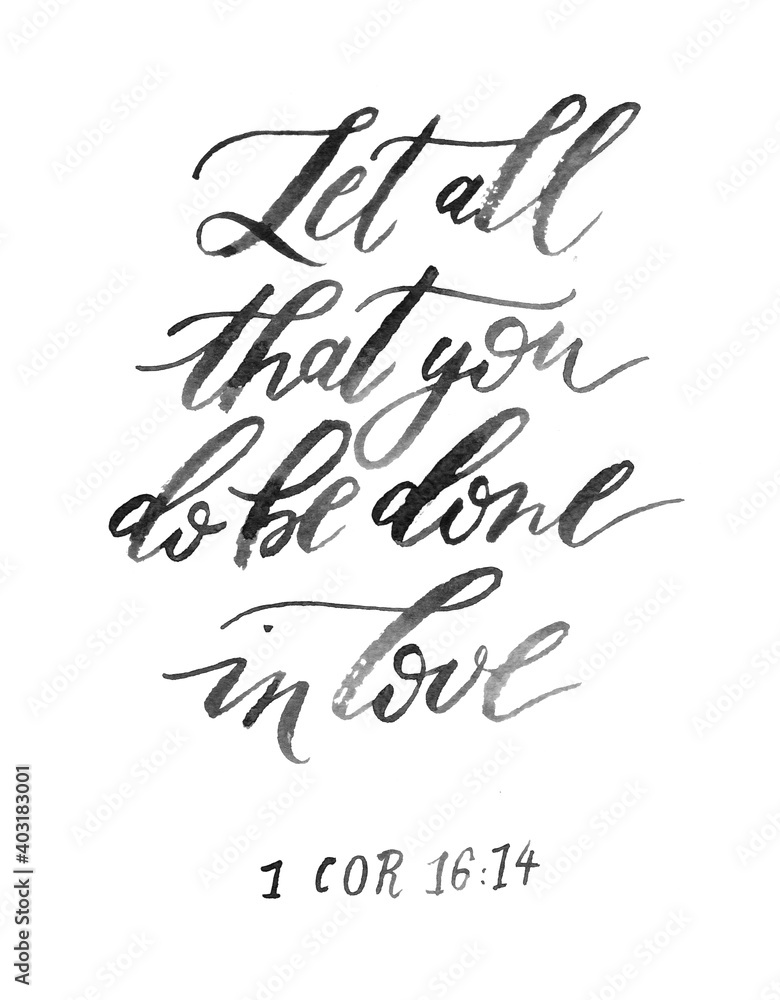 Let all
that you
do be done
in love
1 COR 16:14
Adobe Stock | #403183001